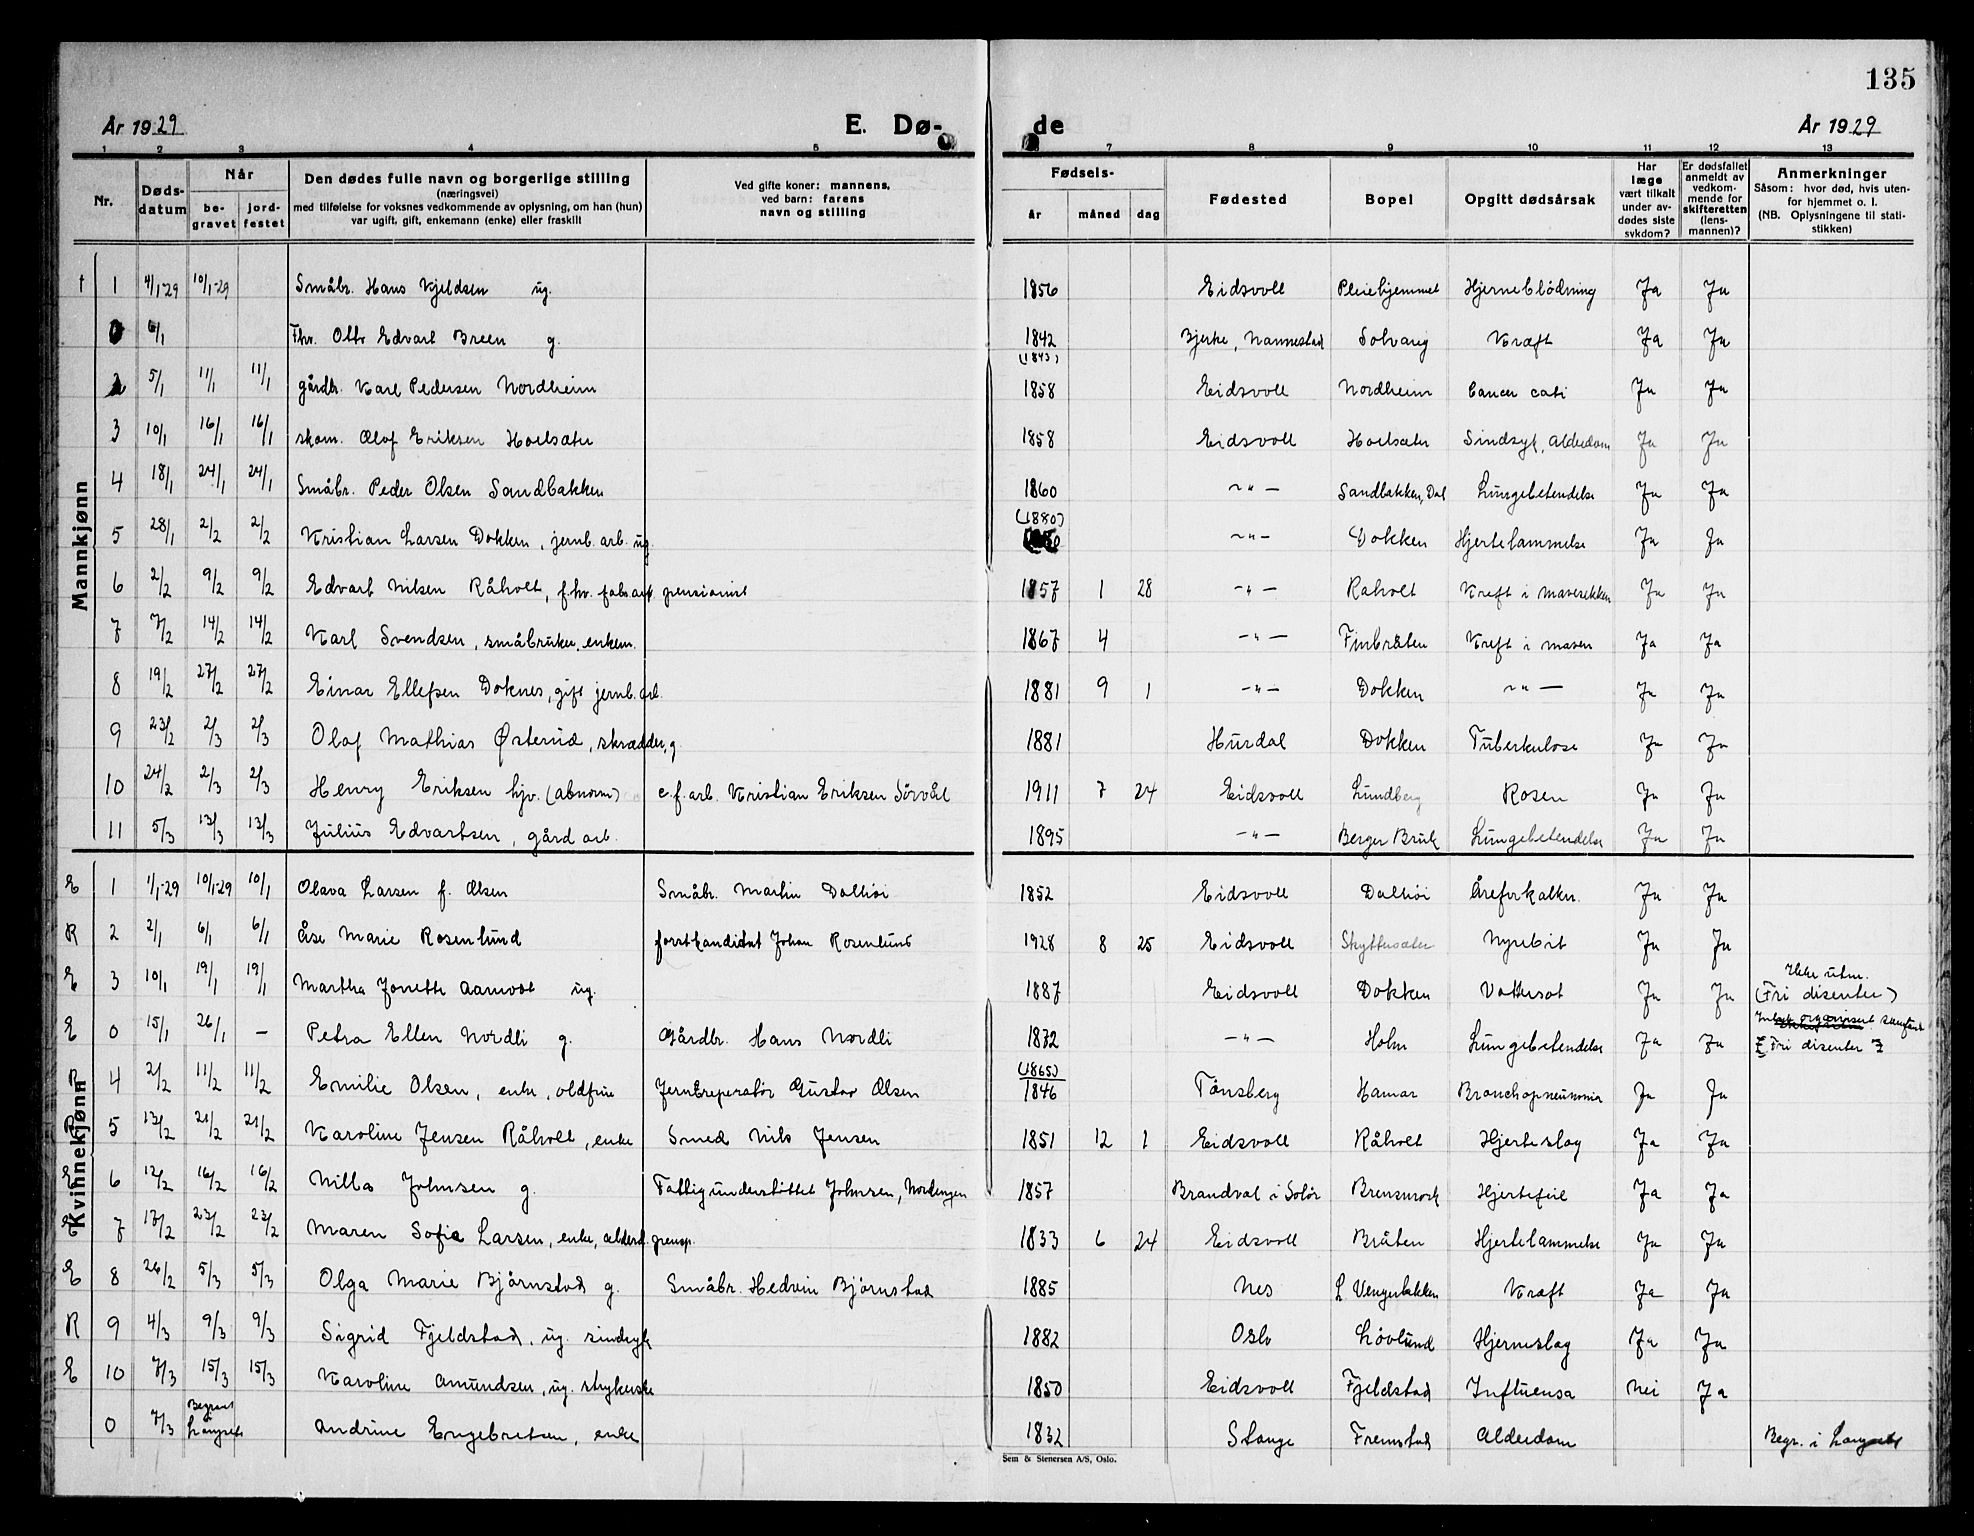 135
År 1929 E. Dø- de År 1929
1 2 3 4 5 7 8 9 10 11 12 13
Nr. Døds-datum Når be-gravet jord-festet Den dødes fulle navn og borgerlige stilling (næringsvei) med tilføielse for voksnes vedkommende av oplysning, om han (hun) var ugift, gift, enkemann (enke) eller fraskilt Ved gifte koner: mannens, ved barn: farens navn og stilling Fødsels- år måned dag Fødested Bopel Opgitt dødsårsak Har læge vært tilkalt under av-dødes siste sykdom? Er dødsfallet anmeldt av vedkom-mende for skifteretten (lens-mannen)? Anmerkninger Såsom: hvor død, hvis uten-for hjemmet o. l. (NB. Oplysningene til stati-stikken)
Mannkjønn
† 1 4/1-29 10/1-29 Småbr. Hans Kjeldsen ug. 1856 Eidsvoll Pleiehjemmet Hjerneblödning Ja Ja
0 6/1 Fhv. Otto Edvart Breen g. 1842 (1843) Bjerke, Nannestad Solvang Kræft Ja Ja
2 5/1 11/1 11/1 gårdbr. Karl Pedersen Nordheim 1858 Eidsvoll Nordheim Cancer Ja Ja
3 10/1 16/1 16/1 skom. Olof Eriksen Hoelsæter 1858 Eidsvoll Hoelsæter Sindsyk, Alderdom Ja Ja
4 18/1 24/1 24/1 Småbr. Peder Olsen Sandbakken 1860 -"- Sandbakken, Dal Lungebetendelse Ja Ja
5 28/1 2/2 2/2 Kristian Larsen Dokken, jernb. arb. ug. (1880) -"- Dokken Hjertelammelse Ja Ja
6 2/2 9/2 9/2 Edvart Nilsen Råholt, f.hv. fabr.arb. pensionist 1857 1 28 -"- Raholt Kreft i mavesekken Ja Ja
7 7/2 14/2 14/2 Karl Svendsen, småbruker, enkem. 1867 4 -"- Finbråten Kreft i maven Ja Ja
8 19/2 27/2 27/2 Einar Ellefsen Doknes, gift jernb. arb. 1881 9 1 -"- Dokken -"- Ja Ja
9 23/2 2/3 2/3 Olaf Mathias Østerud, skrædder, g 1881 Hurdal Dokken Tuberkulose Ja Ja
10 24/2 2/3 2/3 Henry Eriksen hjv. (abnorm) e.f. arb. Kristian Eriksen Sörvål 1911 7 24 Eidsvoll Lundberg Rosen Ja Ja
11 5/3 13/3 13/3 Julius Edvartsen, gård arb. 1895 -"- Berger Bruk Lungebetendelse Ja Ja
Kvinnekjønn
E 1 1/1-29 10/1-29 10/1 Olava Larsen f. Olsen Småbr. Martin Dalhöi 1852 Eidsvoll Dalhöi Åreforkalkn. Ja Ja
R 2 2/1 6/1 6/1 Åse Marie Rosenlund forstkandidat Johan Rosenlund 1928 8 25 Eidsvoll Skyttersæter Nyrebit Ja Ja
E 3 10/1 19/1 19/1 Martha Jonette Aamodt ug. 1887 Eidsvoll Dokken Vattersot Ja Ja Ikke utm. (Fri disenter)
E 0 15/1 26/1 – Petra Ellen Nordli g. Gårdbr. Hans Nordli 1872 -"- Holm Lungebetendelse Ja Ja organisert samfund [Fri disenter]
R 4 2/2 11/2 11/2 Emilie Olsen, enke, oldfrue Jernbreperatör Gustav Olsen (1865) 1846 Tönsberg Hamar Bronchopneumonia Ja Ja
R 5 13/2 21/2 21/2 Karoline Jensen Råholt, enke Smed Nils Jensen 1851 12 1 Eidsvoll Råholt Hjerteslag Ja Ja
E 6 12/2 16/2 16/2 Milla Johnsen g. Fattigunderstöttet Johnsen, Nordengen 1857 Brandval i Solör Brensmork Hjertefeil Ja Ja
E 7 17/2 23/2 23/2 Maren Sofie Larsen, enke, alderd. pensp. 1833 6 24 Eidsvoll Bråten Hjertelammelse Ja Ja
E 8 26/2 5/3 5/3 Olga Marie Björnstad g. Småbr. Hedvin Björnstad 1885 Nes L Vengerbakken Kræft Ja Ja
R 9 4/3 9/3 9/3 Sigrid Fjeldstad, ug. sindsyk 1882 Oslo Lövlund Hjerneslag Ja Ja
E 10 7/3 15/3 15/3 Karoline Amundsen, ug. strykerske 1850 Eidsvoll Fjeldstad Influensa Nei Ja
0 7/3 Begravet Langset Andrine Engebretsen, enke 1832 Stange Fremstad Alderdom Begr. i Langset
Sem & Stenersen A/S, Oslo.